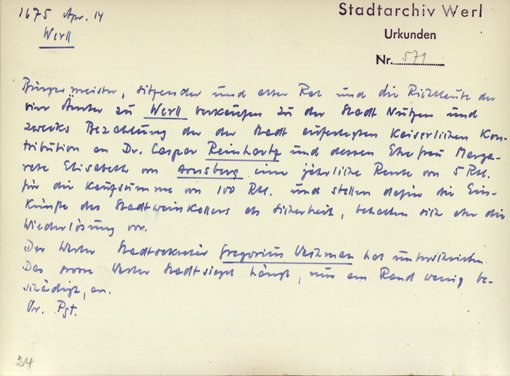 1675 Apr. 14
Werll
Stadtarchiv Werl
Urkunden
Nr. 571
Bürgermeister, sitzender und alter Rat und die Richtleute der
vier Ämter zu Werll verkaufen zu der Stadt Nutzen und
zwecks Bezahlung der der Stadt auferlegten Kaiserlichen Kon-
tribution an Dr. Caspar Reinhartz und dessen Ehefrau Marga-
rete Elisabeth von Arnsberg eine jährliche Rente von 5 Rtl.
für die Kaufsumme von 100 Rtl. und stellen dafür die Ein-
künfte des Stadtweinkellers als Sicherheit, behalten sich aber die
Wiederlösung vor.
Der Werler Stadtsekretär Gregorius hat unterschrieben.
Das Werler Stadtsiegel hängt, nur am Rand wenig be-
schädigt, an.
Or. Pgt.
214